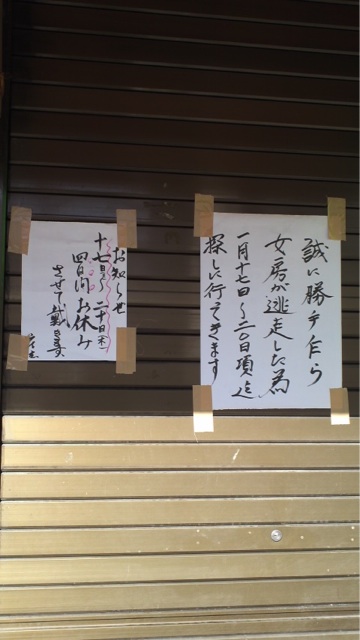 誠に勝手乍ら
女房が逃走した為
一月十七日〜二〇日頃迄
探しに行ってきます
お知らせ
十七日〜二十日(木)
四日間お休み
させて戴きます
店主